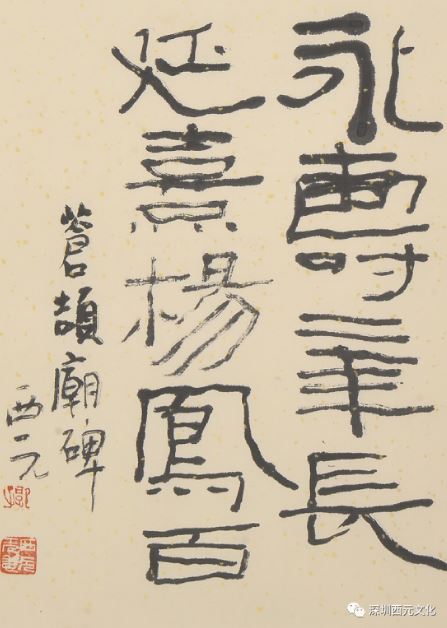 永壽二年長
延熹楊鳳百
蒼頡廟碑
西元
深圳西元文化